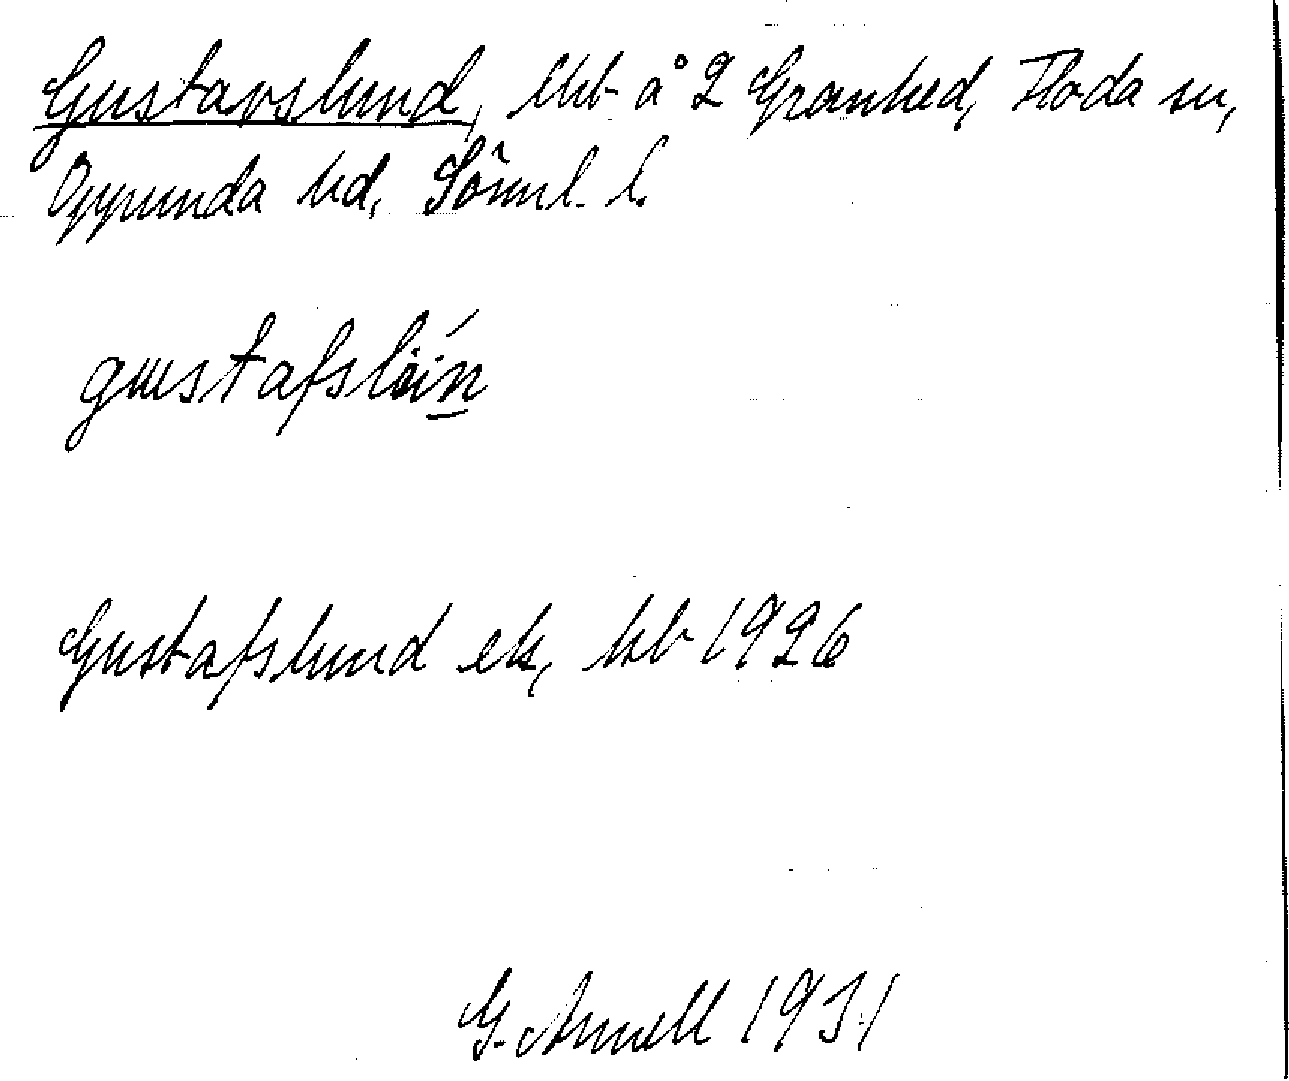 Gustavslund, lht å 2 Granhed, Floda sn,
Oppunda hd, Sörml. l.
gustafslŭn
Gustafslund ek, kb 1926
G. Annell 1931